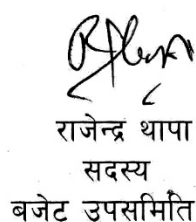 राजेन्द्र थापा
सदस्य
बजेट उपसमिति